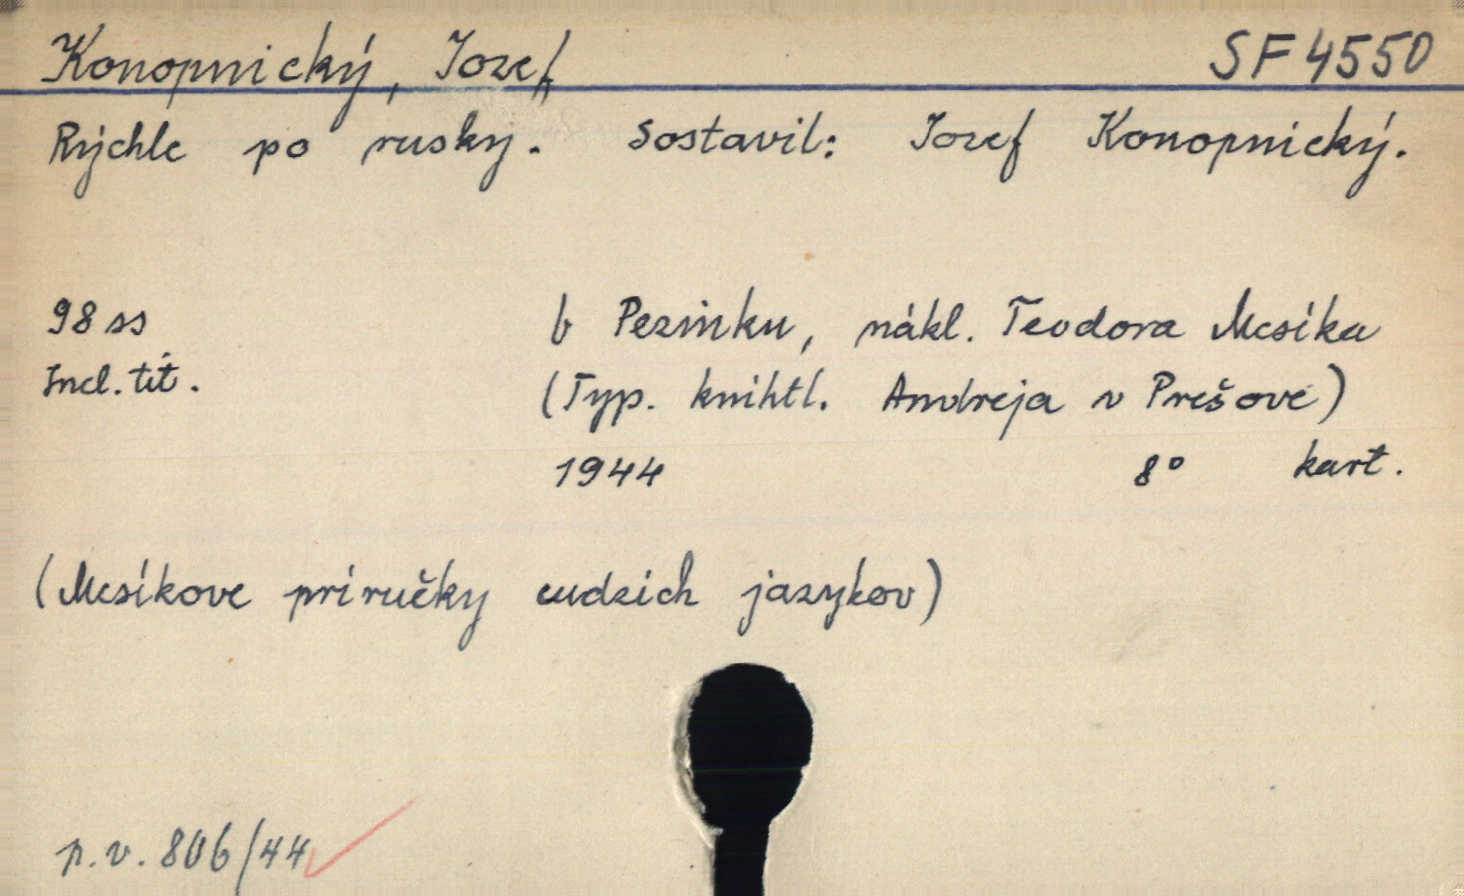 Konopnický, Jozef SF 4550
Rýchle po rusky. Sostavil: Jozef Konopnický.
98 ss b Pezinku, nákl. Teodora Mcsíka
Incl. tit. (Typ. knihtl. Andreja v Prešove)
1944 8° kart.
(Mcsíkove príručky cudzích jazykov)
p.v. 806/44